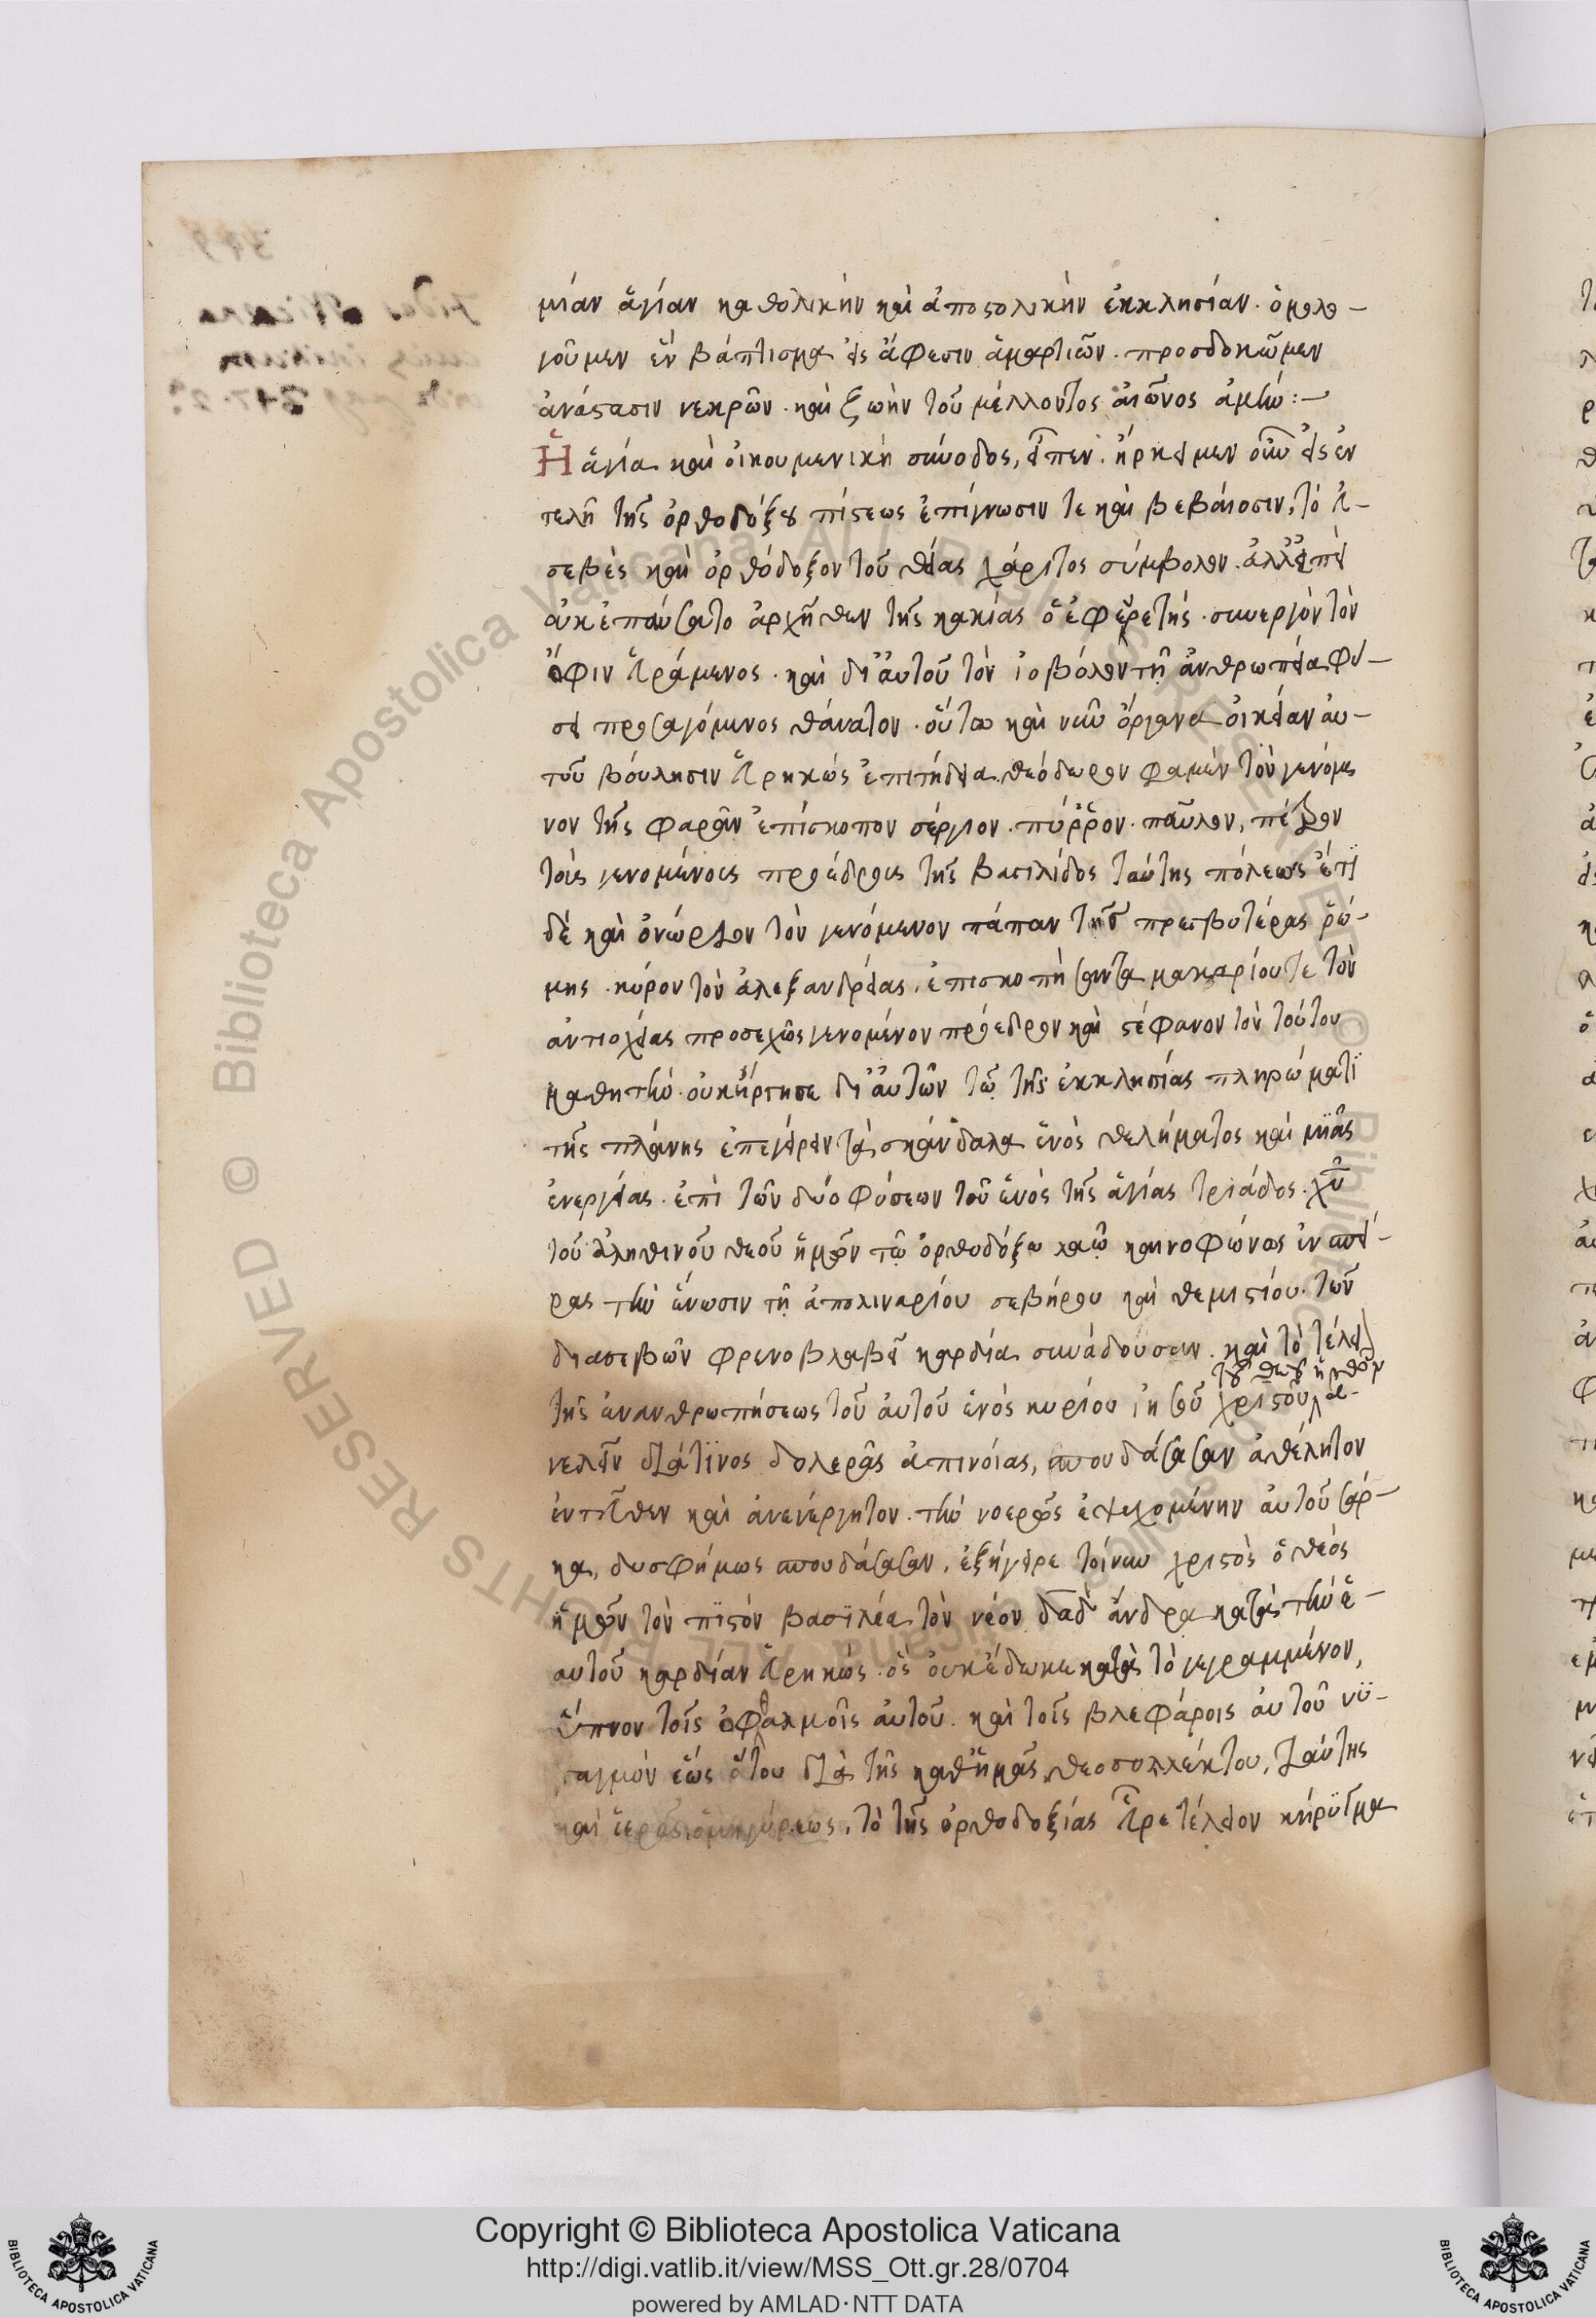 μίαν ἁγίαν καθολικὴν καὶ ἀποστολικὴν ἐκκλησίαν. ὁμολο-
γοῦμεν ἓν βάπτισμα εἰς ἄφεσιν ἁμαρτιῶν. προσδοκῶμεν
ἀνάστασιν νεκρῶν. καὶ ζωὴν τοῦ μέλλοντος αἰῶνος ἀμήν:—
Ἡ ἁγία καὶ οἰκουμενικὴ σύνοδος, εἶπεν. ἤρκει μὲν οὖν εἰς ἐν
τελῆ τῆς ὀρθοδόξου πίστεως ἐπίγνωσιν τε καὶ βεβαίοσιν, τὸ εὐ-
σεβὲς καὶ ὀρθόδοξον τοῦ θείας χάριτος σύμβολον. ἀλλ' ἐπεὶ
οὐκ ἐπαύσατο ἀρχῆθεν τῆς κακίας ὁ ἐφευρετής. συνεργὸν τὸν
ὄφιν εὑράμενος. καὶ δι' αὐτοῦ τὸν ἰοβόλον τῇ ἀνθρωπεία φύ-
σει προσαγόμενος θάνατον. οὕτω καὶ νῦν ὄργανα οἰκείαν αὐ-
τοῦ βούλησιν εὑρηκώς ἐπιτήδεια. θεόδωρον φαμὲν τὸν γενόμε
νον τῆς φαρᾶν ἐπίσκοπον σέργιον. πύῤῥον. παῦλον, πέτρον
τοὺς γενομένους προέδρους τῆς βασιλίδος ταύτης πόλεως ἔτι
δὲ καὶ ὀνώριον τὸν γενόμενον πάπαν τῆς πρεσβυτέρας ῥώ-
μης. κύρον τὸν ἀλεξανδρείας. ἐπισκοπήσαντα μακαρίου τε τὸν
ἀντιοχείας προσεχῶς γενομένον πρόεδρον καὶ στέφανον τὸν τούτου
μαθητήν. οὐκ ἤργησε δι' αὐτῶν τῷ τῆς ἐκκλησίας πληρώματι
τῆς πλάνης ἐπεγείρειν τὰ σκάνδαλα ἑνὸς θελήματος καὶ μιᾶς
ἐνεργείας. ἐπὶ τῶν δύο φύσεων τοῦ ἑνὸς τῆς ἁγίας τριάδος. χῦ
τοῦ ἀληθινοῦ θεοῦ ἡμῶν τῷ ὀρθοδόξω λαῷ καινοφώνως ἐνσπεί-
ρας τὴν ἕνωσιν τῇ ἀπολιναρίου σεβήρου καὶ θεμιστίου. τῶν
δυσσεβῶν φρενοβλαβεῖ καρδία συνάδουσαν. καὶ τὸ τέλει
τῆς ἐνανθρωπήσεως τοῦ αὐτοῦ ἑνὸς κυρίου ἰησοῦ χριστοῦ τοῦ θεοῦ ἡμῶν ἀ-
νελεῖν διά τινος δολερᾶς ἀπινοίας, σπουδάσασαν ἀθέλητον
ἐντεῦθεν καὶ ἀνενέργητον. τὴν νοερῶς ἐψυχομένην αὐτοῦ σάρ-
κα, δυσφήμως σπουδάσασαν. ἐξήγειρε τοίνυν χριστὸς ὁ θεὸς
ἡμῶν τὸν πιστὸν βασιλέα τὸν νέον δαδ ἄνδρα κατὰ τὴν ἑ-
αυτοῦ καρδίαν εὑρηκώς. ὃς οὐκ ἔδωκε κατὰ τὸ γεγραμμένον,
ὕπνον τοῖς ὀφθαλμοῖς αὐτοῦ. καὶ τοῖς βλεφάροις αὐτοῦ νυ-
σταγμὸν ἕως ὅτου διὰ τῆς καθ' ἡμᾶς θεοσυλλέκτου, ταύτης
καὶ ἱερᾶς ὁμηγύρεως. τὸ τῆς ὀρθοδοξίας εὗρε τέλειον κήρυγμα
Copyright © Biblioteca Apostolica Vaticana
http://digi.vatlib.it/view/MSS_Ott.gr.28/0704
powered by AMLAD·NTT DATA